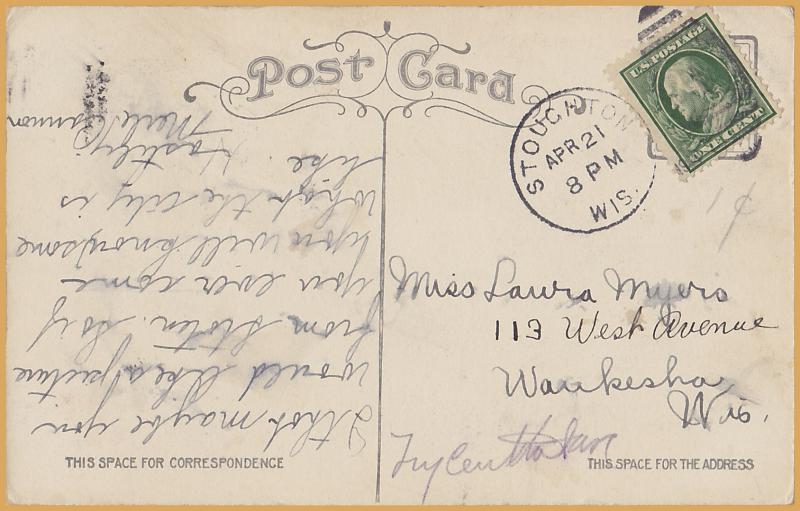 Post Card
U.S. POSTAGE
ONE CENT
STOUGHTON
APR 21
8 PM
WIS.
1¢
I thot maybe you
would like a picture
from Stoten. so if
you ever come
you will know some
what the city is
like.
Hastily
Merle Cannon
Miss Laura Myers
113 West Avenue
Waukesha
Wis.
Try Cen
THIS SPACE FOR CORRESPONDENCE
THIS SPACE FOR THE ADDRESS